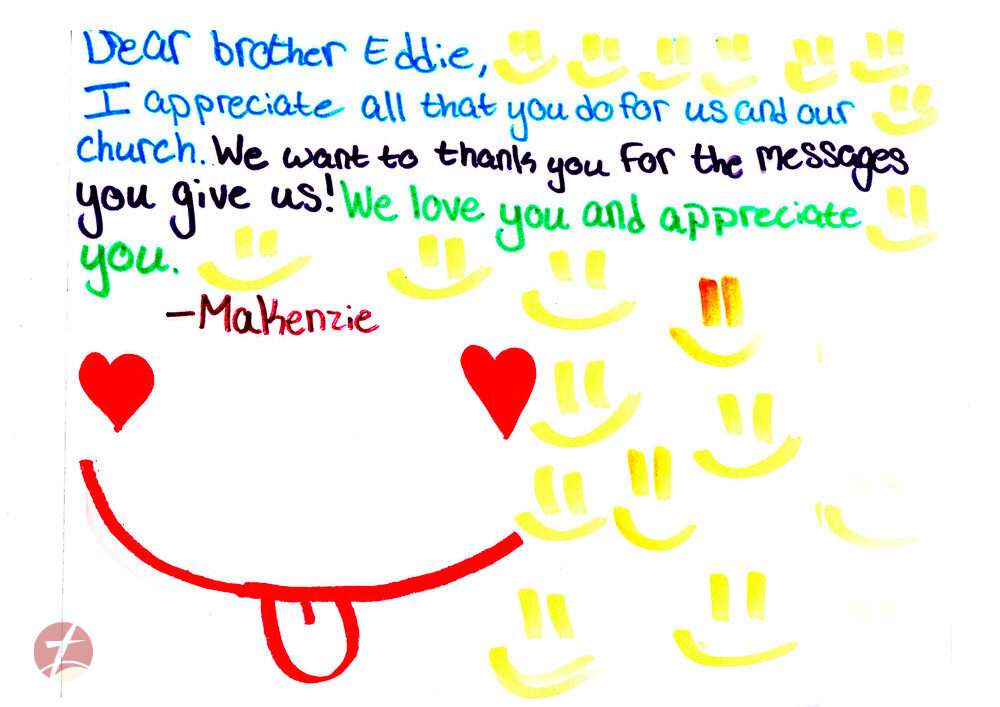 Dear brother Eddie,
I appreciate all that you do for us and our
church. We want to thank you For the messages
you give us! We love you and appreciate
you.
-MaKenzie